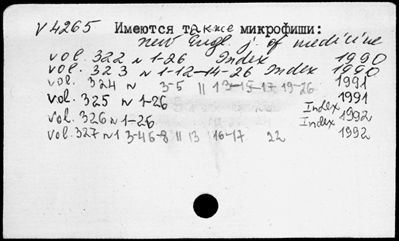 V 4265 Имеются также микрофиши:
New Engl. j. of medicine
vol. 322 N 1-26 Index 1990
vol. 323 N 1-12-14-26 Index 1990
vol. 324 N 3-5 11 13-15-17 19-26 1991
vol. 325 N 1-26 Index 1991
vol. 326 N 1-26 Index 1992
vol. 327 N 1 3-4 6-8 11 13 16-17 22 1992